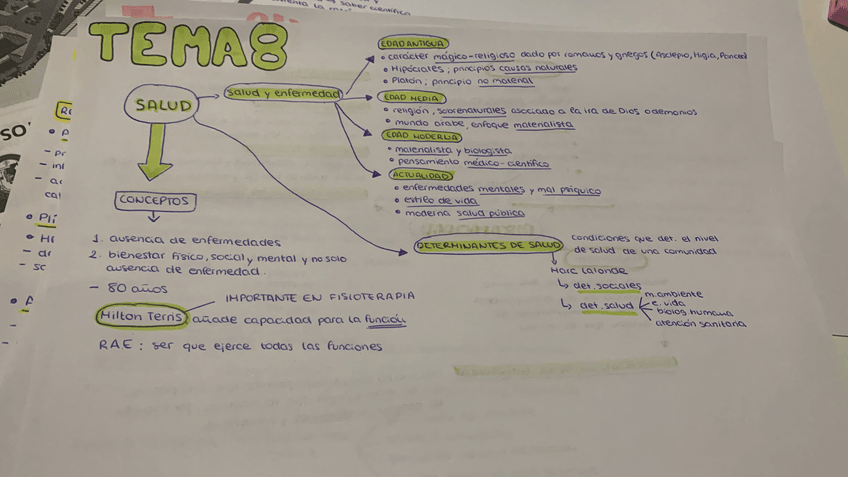 TEMA 8
SALUD
salud y enfermedad
EDAD ANTIGUA
• carácter mágico-religioso dado por romanos y griegos (Asclepio, Higia, Panacea)
• Hipócrates; principios causas naturales
• Platón; principio no material
EDAD MEDIA
• religión, sobrenaturales asociado a la ira de Dios o demonios
• mundo árabe, enfoque materialista
EDAD MODERNA
• materialista y biologista
• pensamiento médico-científico
ACTUALIDAD
• enfermedades mentales y mal psíquico
• estilo de vida
• moderna salud pública
CONCEPTOS
1. ausencia de enfermedades
2. bienestar físico, social y mental y no solo
ausencia de enfermedad.
- 80 años
IMPORTANTE EN FISIOTERAPIA
Milton Terris añade capacidad para la función
RAE: ser que ejerce todas las funciones
DETERMINANTES DE SALUD
condiciones que det. el nivel
de salud de una comunidad
Marc Lalonde
↳ det. sociales
↳ det. salud
m. ambiente
e. vida
biolog. humana
atención sanitaria